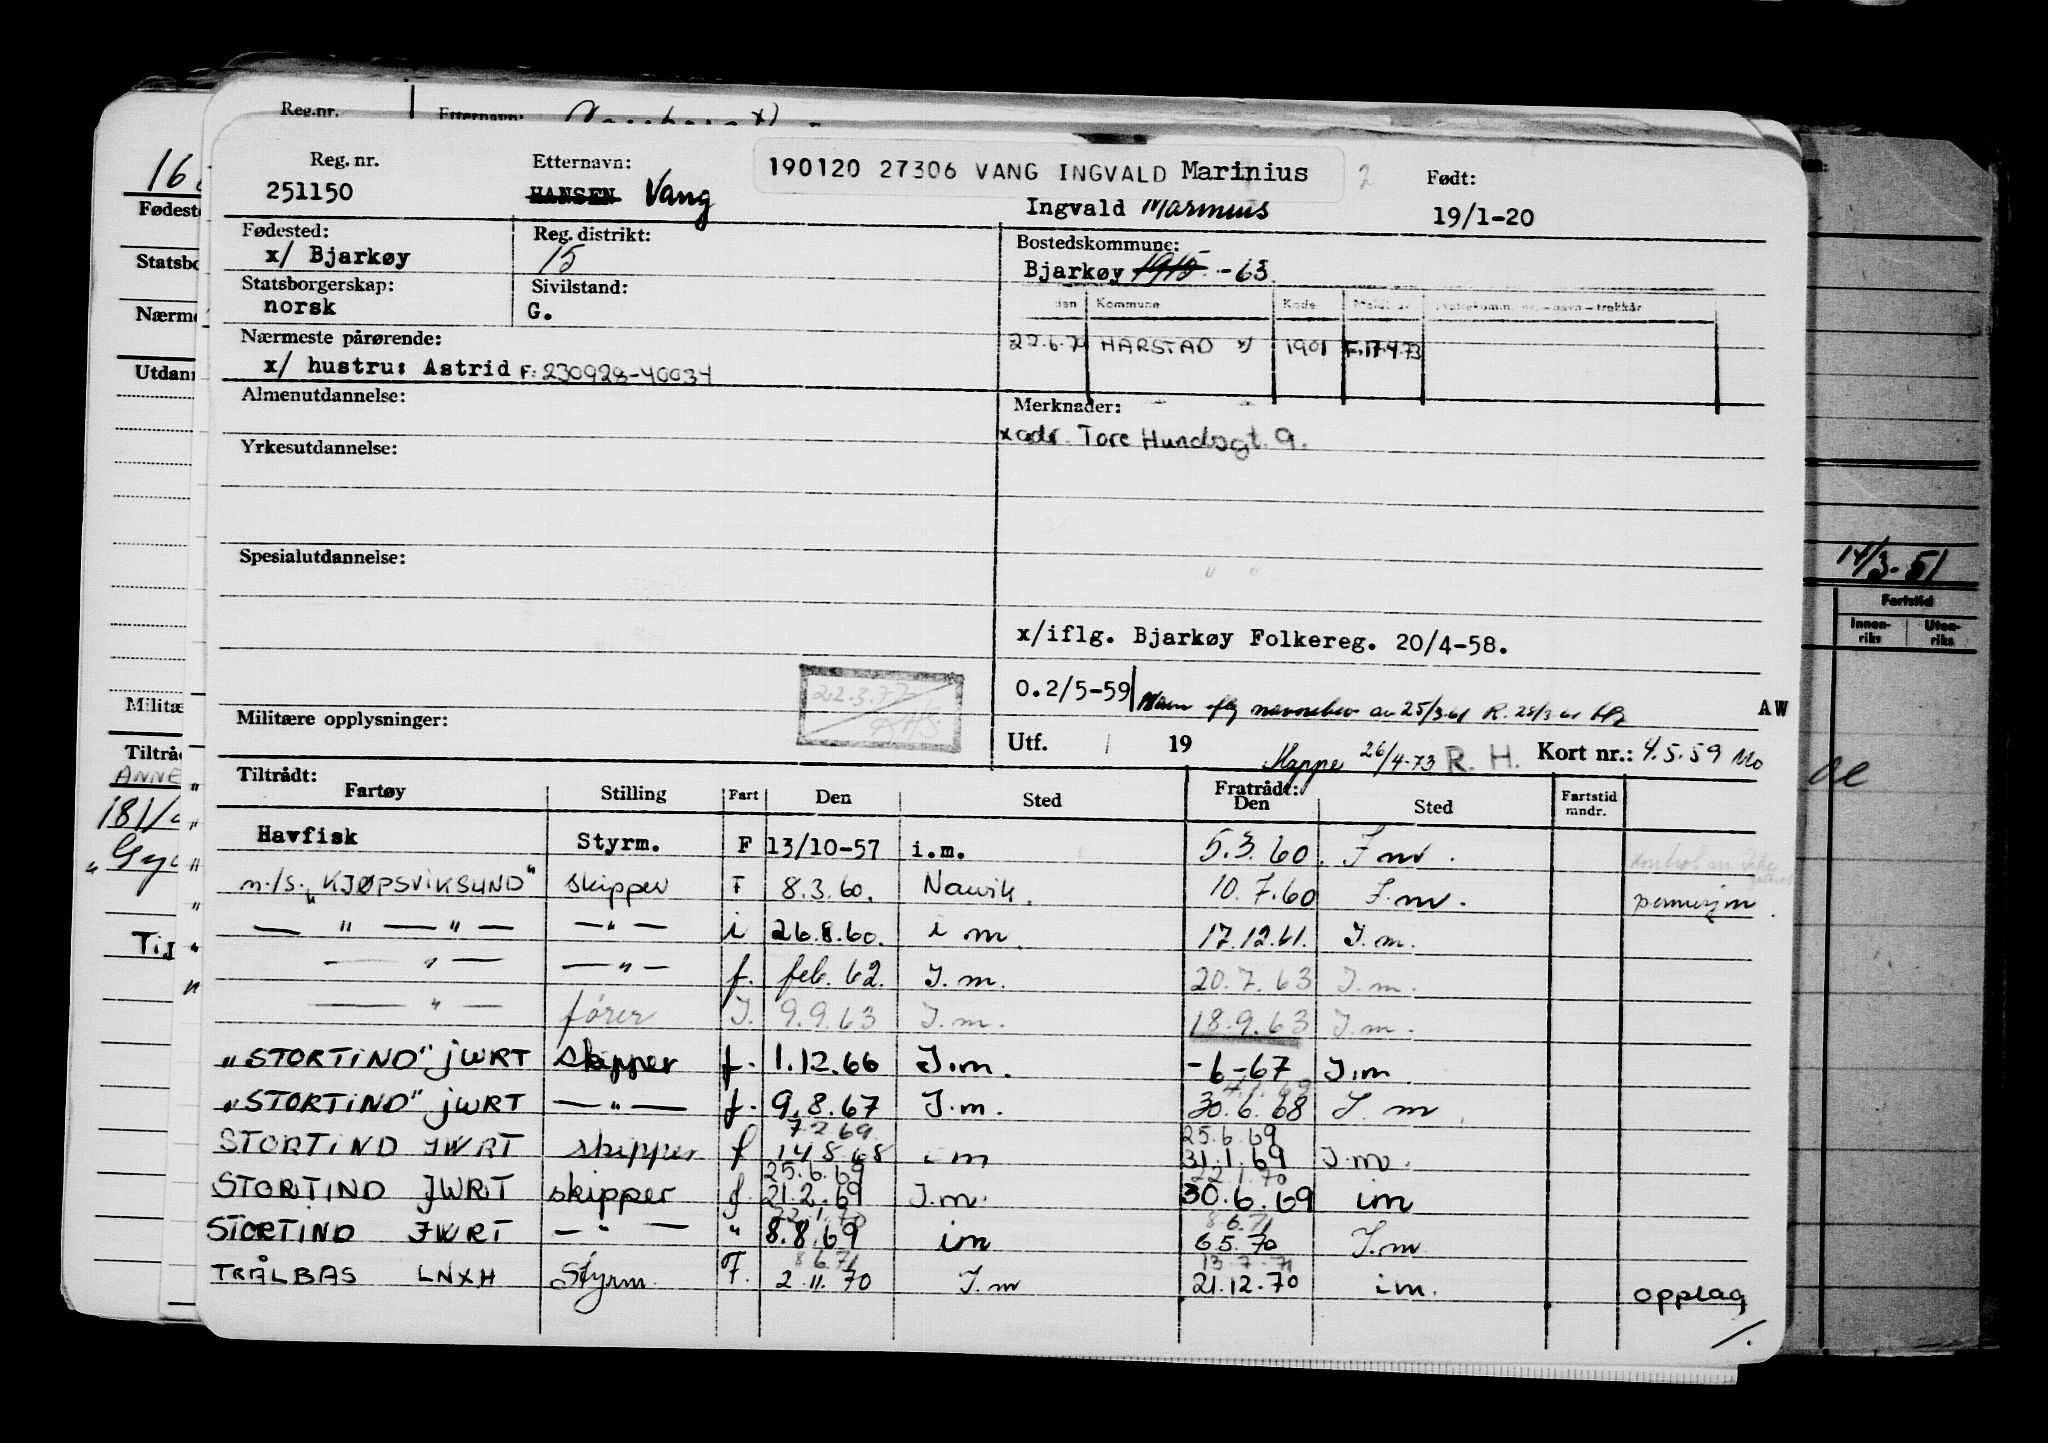 Reg.nr. Etternavn:
Reg. nr. Etternavn: 190120 27306 VANG INGVALD Marinius 2 Født:
251150 HANSEN Vang Ingvald Marinius 19/1-20
Fødested: Reg. distrikt: Bostedskommune:
x/ Bjarkøy 15 Bjarkøy 1915 -63
Statsborgerskap: Sivilstand: Kommune Kode
norsk G.
Nærmeste pårørende: 22.6.70 HARSTAD x) 1901 F.17.4.73
x/ hustru: Astrid F: 230928-40034
Almenutdannelse: Merknader:
x adr. Tore Hundsgt. 9.
Yrkesutdannelse:
Spesialutdannelse:
x/iflg. Bjarkøy Folkereg. 20/4-58.
22.3.77
O.2/5-59 Navn iflg navnebev av 25/3 61 R. 28/3 61 AW
Militære opplysninger:
Utf. / 19 Mappe 26/4-73 R. H. Kort nr.: 4.5.59 Mo
Tiltrådt: Fratrådt:
Fartøy Stilling Fart Den Sted Den Sted Fartstid mndr.
Havfisk Styrm. F 13/10-57 i.m. 5.3.60. I m.
m/s. „KJØPSVIKSUND" skipper F 8.3.60. Narvik. 10.7.60 I.m. permisjon.
— " — " — — " — i 26.8.60. i m. 17.12.61. I.m.
— " — — " — f. feb. 62. I.m. 20.7.63 I.m.
— " — fører I. 9.9.63 I.m. 18.9.63 I.m.
„STORTIND" JWRT skipper f. 1.12.66 I.m. -6-67 I.m.
4.1.69
„STORTIND" JWRT — " — f. 9.8.67 I.m. 30.6.68 I.m
7.2.69 25.6.69
STORTIND JWRT skipper f 14.8.68 i m 31.1.69 I.m.
25.6.69 22.1.70
STORTIND JWRT skipper f. 21.2.69 I.m. 30.6.69 im
22.1.70 8.6.71
STORTIND JWRT — " — " 8.8.69 im 6.5.70 I.m
8.6.71 13.7.71
TRÅLBAS LNXH Styrm. F. 2.11.70 I.m 21.12.70 im. opplag
/.
14/3-51
Fartstid
Innen-riks Uten-riks